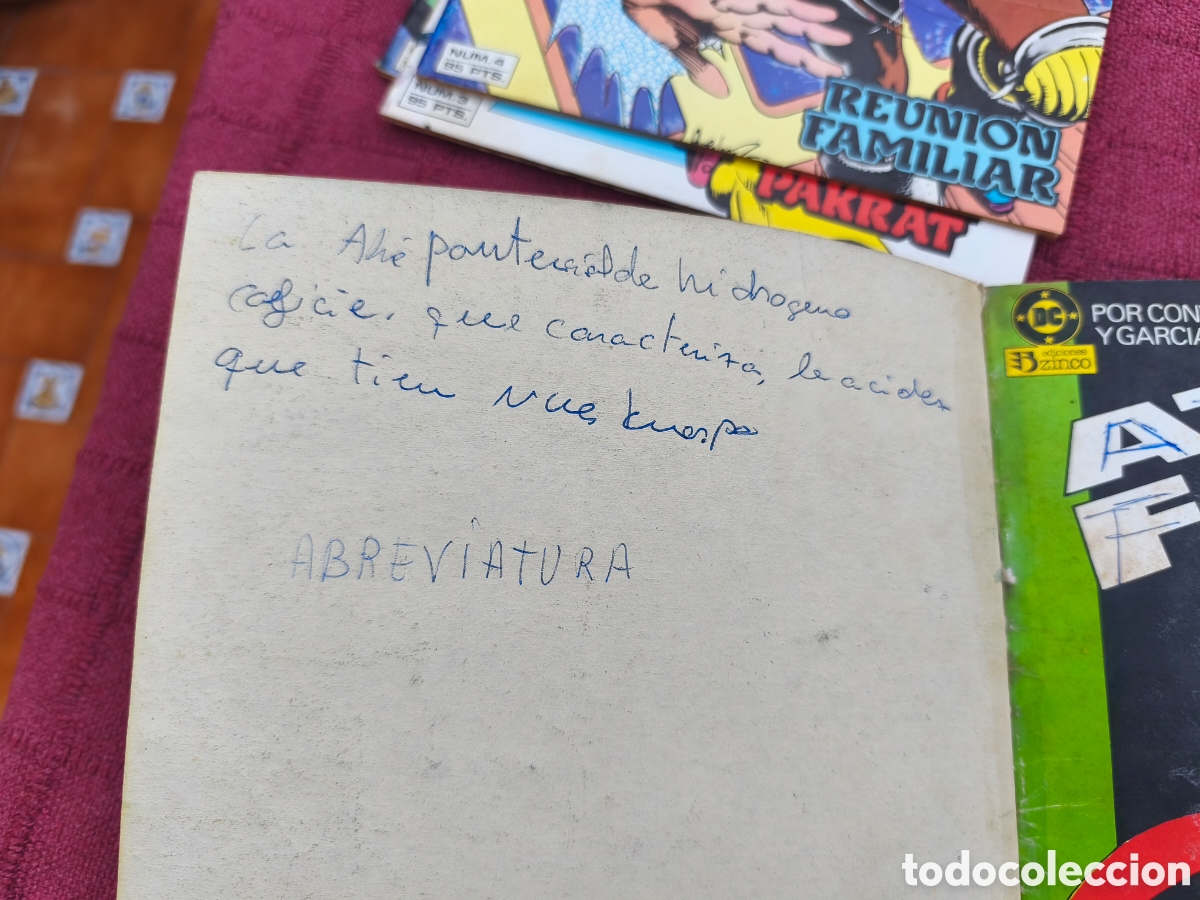 NUM. 4
95 PTS.
NUM. 3
95 PTS.
REUNION
FAMILIAR
PAKRAT
La Ahí pontencial de hidrogeno
que caracteriza, la acidez
que tien nues kuerpo
ABREVIATURA
DC
POR CON
Y GARCIA
ediciones
zinco
A
F
todocoleccion